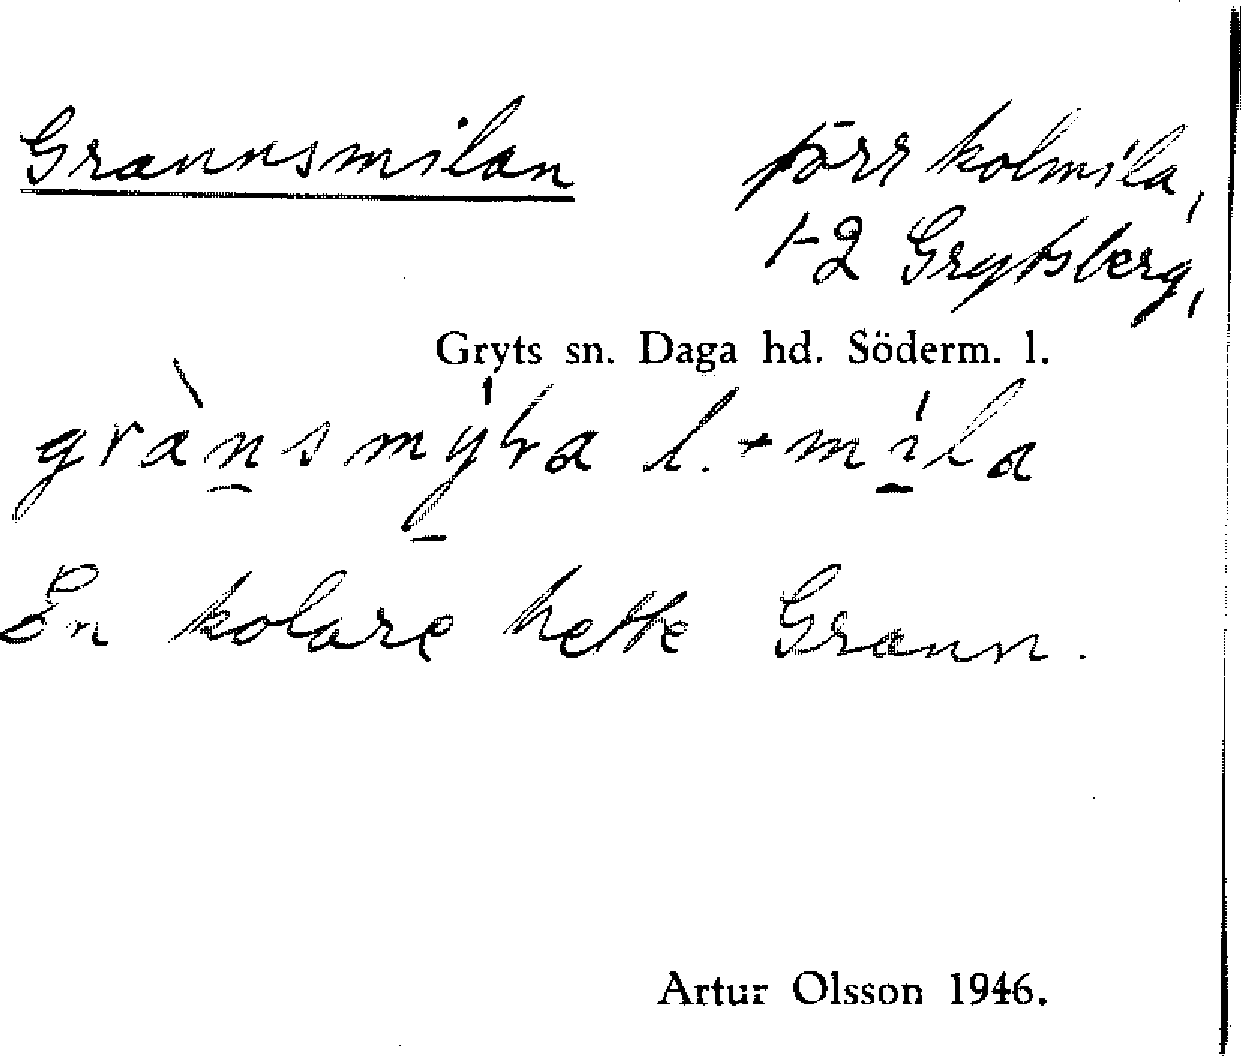 Grannsmilan förr kolmila,
1-2 Grytsberg,
Gryts sn. Daga hd. Söderm. l.
l. -mila
En kolare hette Grann.
Artur Olsson 1946.